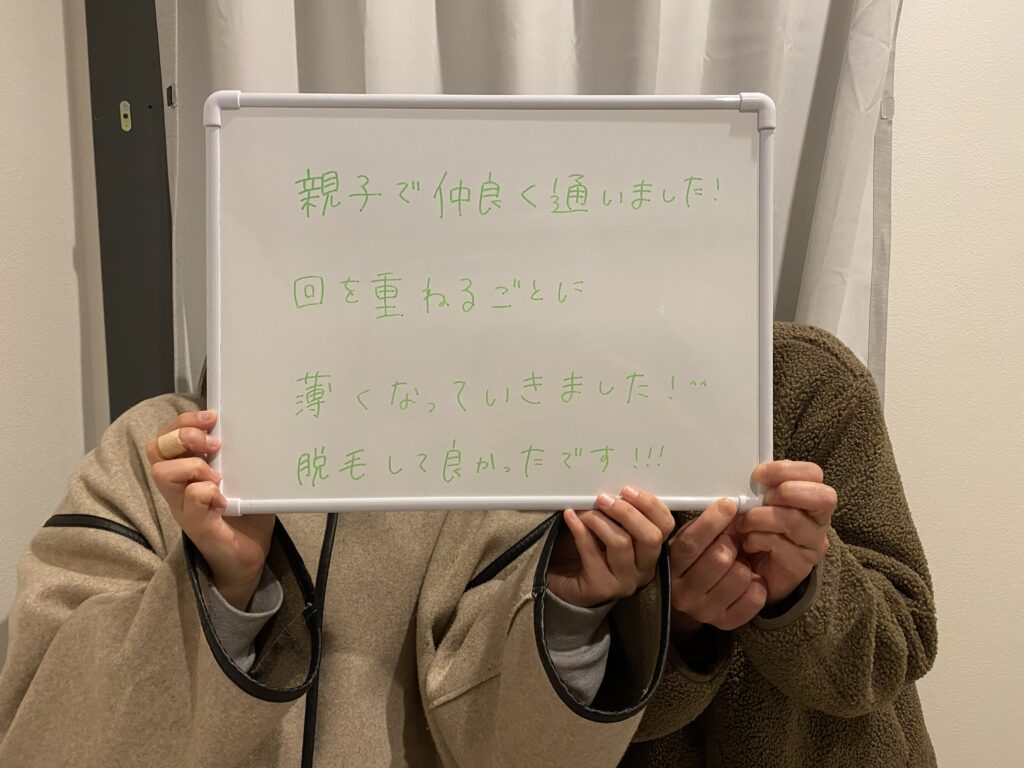 親子で仲良く通いました!
回を重ねるごとに
薄くなっていきました!^^
脱毛して良かったです!!!